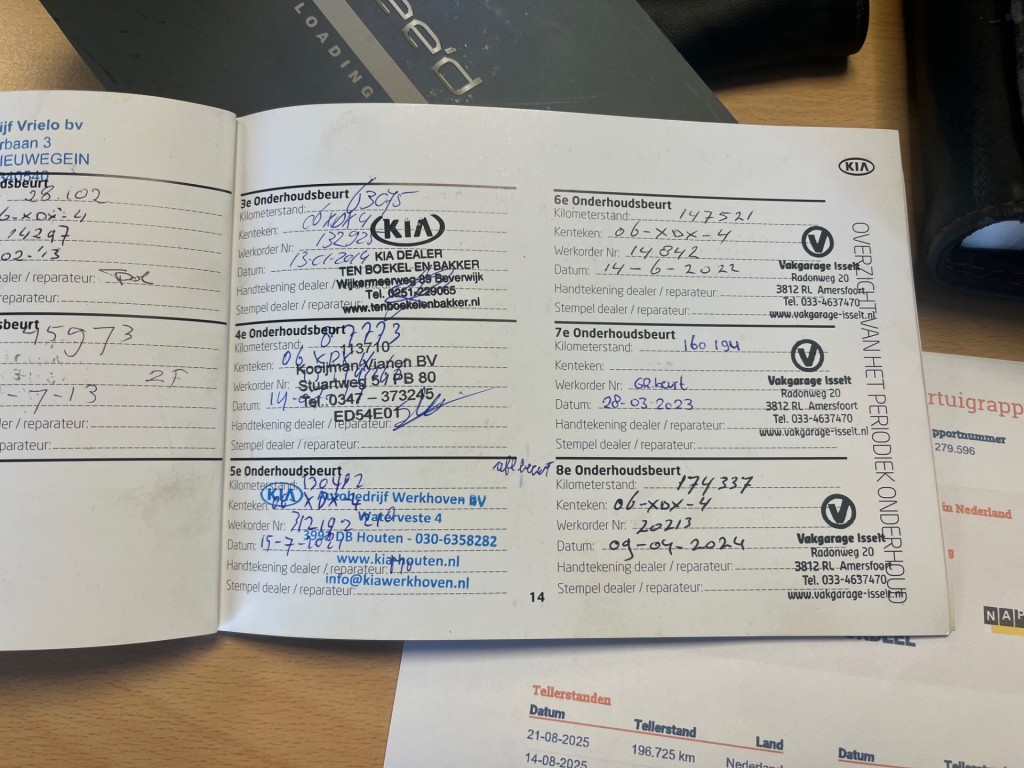 ee'd
LOADING
ijf Vrielo bv
rbaan 3
IEUWEGEIN
340540
dsbeurt
28.102
6-XDX-4
14297
02-'13
ealer / reparateur:
reparateur:
sbeurt
45973
2F
-7-13
ealer / reparateur:
paratuer:
3e Onderhoudsbeurt
Kilometerstand: 63075
Kenteken: 06XDX4
Werkorder Nr: 132925
Datum: 13-01-2014
Handtekening dealer / reparateur:
Stempel dealer / reparateur:
KIA
KIA DEALER
TEN BOEKEL EN BAKKER
Wijkermeerweg 89 Beverwijk
Tel. 0251-229065
www.tenboekelenbakker.nl
4e Onderhoudsbeurt
Kilometerstand:
Kenteken: 06 XDX
Werkorder Nr:
Datum: 14-
Handtekening dealer / reparateur:
Stempel dealer / reparateur:
113710
Kooijman Vianen BV
Stuartweg 59 PB 80
Tel. 0347 – 373245
ED54E01
5e Onderhoudsbeurt
Kilometerstand: 130412
Kenteken: 06 XDX-4
Werkorder Nr: 312192
Datum: 15-7-
Handtekening dealer / reparateur:
Stempel dealer / reparateur:
KIA Autobedrijf Werkhoven BV
Waterveste 4
3992 DB Houten - 030-6358282
www.kiahouten.nl
info@kiawerkhoven.nl
14
KIA
6e Onderhoudsbeurt
Kilometerstand: 147521
Kenteken: 06-XDX-4
Werkorder Nr: 14842
Datum: 14-6-2022
Handtekening dealer / reparateur:
Stempel dealer / reparateur:
Vakgarage Isselt
Radonweg 20
3812 RL Amersfoort
Tel. 033-4637470
www.vakgarage-isselt.nl
7e Onderhoudsbeurt
Kilometerstand: 160194
Kenteken:
Werkorder Nr: GR.beurt
Datum: 28-03-2023
Handtekening dealer / reparateur:
Stempel dealer / reparateur:
Vakgarage Isselt
Radonweg 20
3812 RL Amersfoort
Tel. 033-4637470
www.vakgarage-isselt.nl
8e Onderhoudsbeurt
Kilometerstand: 174337
Kenteken: 06-XDX-4
Werkorder Nr: 20213
Datum: 09-04-2024
Handtekening dealer / reparateur:
Stempel dealer / reparateur:
Vakgarage Isselt
Radonweg 20
3812 RL Amersfoort
Tel. 033-4637470
www.vakgarage-isselt.nl
OVERZICHT VAN HET PERIODIEK ONDERHOUD
rtuigrapp
pportnummer
279.596
in Nederland
g
NAP
RDEEL
Tellerstanden
Datum Tellerstand Land
21-08-2025 196.725 km Nederland
14-08-2025
Datum Tellerst